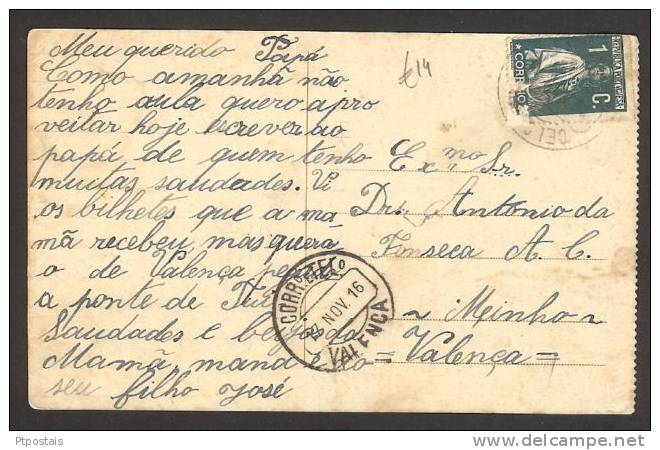 Meu querido Papá
Como amanhã não
tenho aula quero apro
veitar hoje escrever ao
papá, de quem tenho
muitas saudades. Vi
os bilhetes que a ma
mã recebeu, mas quera
o de Valença
a ponte de
Saudades e
Mamã, manda
seu filho José
€14
1 C.
REPUBLICA PORTUGUESA
CORREIO
Ex.mo Sr.
Dr. Antonio da
Fonseca A. C.
~ Minho ~
= Valença =
NOV. 16
VALENÇA
Ptpostais
www.delcampe.net